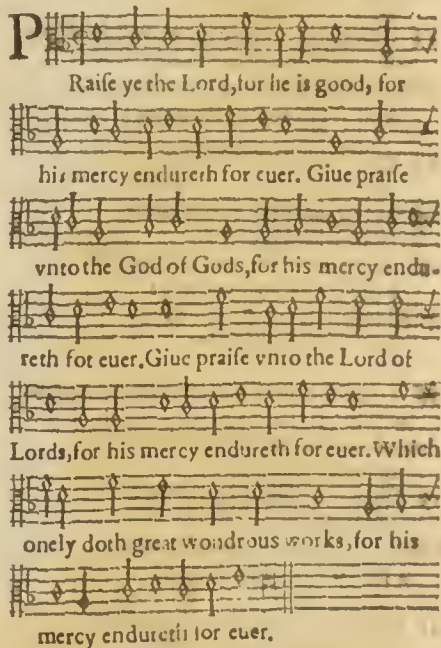 PRaiſe ye the Lord, for he is good, for
his mercy endureth for euer. Giue praiſe
vnto the God of Gods, for his mercy endu-
reth for euer. Giue praiſe vnto the Lord of
Lords, for his mercy endureth for euer. Which
onely doth great wondrous works, for his
mercy endureth for euer.